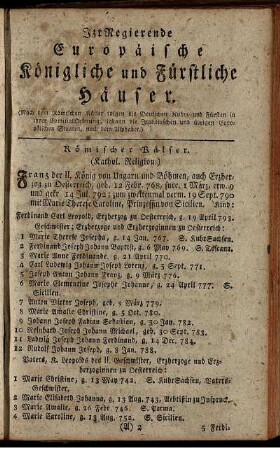 Izt Regierende
Europäische
Königliche und Fürstliche
Häuser.
(Nach dem Römischen Kaiser folgen die Deutschen Kur- und Fürsten in
Römischer Kaiser.
(Kathol. Religion)
Franz der II. König von Ungarn und Böhmen, auch Erzher-
zog zu Oesterreich, geb. 12 Febr. 768, succ. 1 März, erw. 9
und gekr. 14 Jul. 792; zum zweitenmal verm. 19 Sept. 790
mit Marie Theres. Caroline, Prinzessin von Sicilien. Kind:
Ferdinand Carl Leopold, Erzherzog zu Oesterreich, g. 19 April 793.
Geschwister; Erzherzoge und Erzherzoginnen zu Oesterreich:
1 Marie Therese Josepha, g. 14 Jan. 767. S. KurSachsen.
2 Ferdinand Joseph Johann Baptist, g. 6 May 769. S. Toscana.
3 Marie Anne Ferdinande, g. 21 April 770.
4 Carl Ludewig Johann Joseph Lorenz, g. 5 Sept. 771.
5 Joseph Anton Johann Franz, g. 9 März 776.
6 Marie Clementine Josephe Johanne, g. 24 April 777. S.
Sicilien.
7 Anton Victor Joseph, geb. 5 März 779.
8 Marie Amalie Christine, g. 5 Oct. 780.
9 Johann Joseph Fabian Sebastian, g. 20 Jan. 782.
10 Reinhard Joseph Johann Michael, geb. 30 Sept. 783.
11 Ludwig Joseph Johann Ferdinand, g. 14 Dec. 784.
12 Rudolf Johann Joseph, g. 8 Jan. 788.
Vaters, K. Leopolds des II. Geschwister, Erzherzoge und Erz-
herzoginnen zu Oesterreich:
1 Marie Christine, g. 13 May 742. S. KurSachsen, Vaters-
Geschwister.
2 Marie Elisabeth Johanna, g. 13 Aug. 743, Aebtissin zu Inspruck.
3 Marie Amalie, g. 26 Febr. 746. S. Parma.
4 Marie Caroline, g. 13 Aug. 752. S. Sicilien.
(A) 2 5 Ferdi-